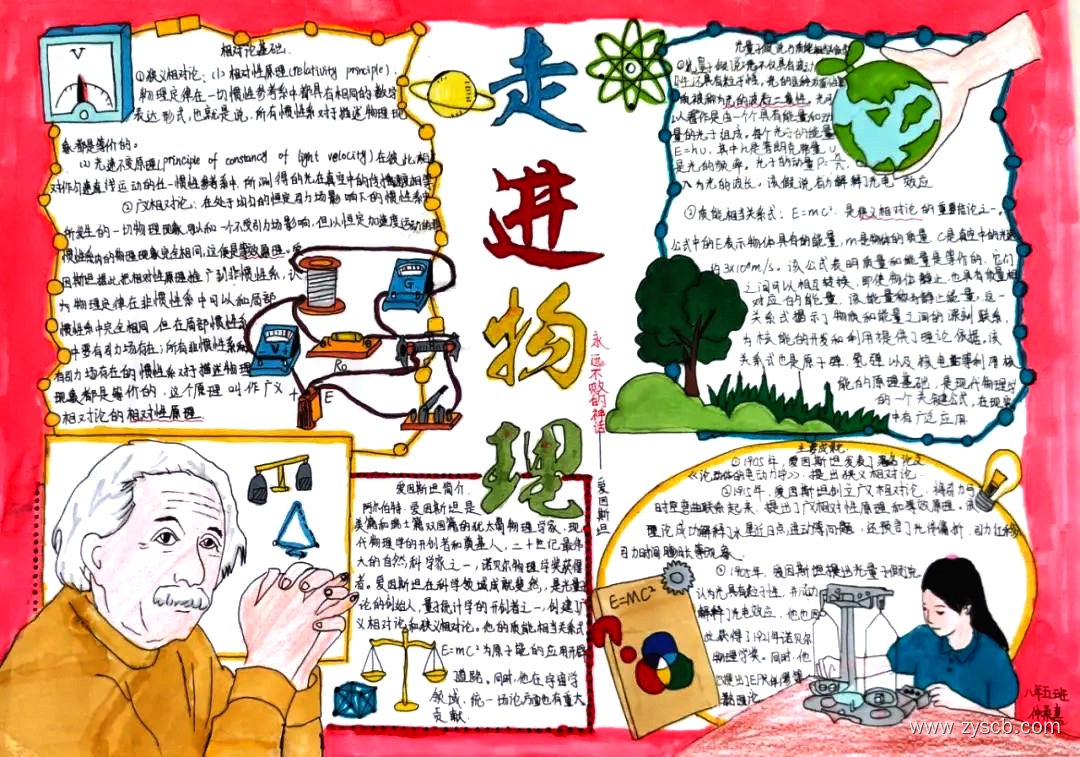 走进物理
永远不败的神话——爱因斯坦
相对论基础.
①狭义相对论:(1)相对性原理(relativity principle).
物理定律在一切惯性参考系中都具有相同的数学
表达形式,也就是说,所有惯性系对于描述物理现
象都是等价的。
(2)光速不变原理(principle of constancy of light velocity)在彼此相
对作匀速直线运动的任一惯性参考系中,所测得的光在真空中的传播速度相等
②广义相对论:在处于均匀的恒定引力场影响下的惯性系中
所发生的一切物理现象,可以和一个不受引力场影响,但以恒定加速度运动的非
惯性系内的物理现象完全相同,这便是等效原理。爱
因斯坦提议把相对性原理推广到非惯性系,认
为物理定律在非惯性系中可以和局部
惯性系中完全相同,但在局部惯性系
中要有引力场存在;所有非惯性系和
有引力场存在的惯性系对于描述物理
现象都是等价的,这个原理叫作广义
相对论的相对性原理
V
G
V
R₀
+
E
光量子假说与质能相当
①光量子假说:光不仅具有波动
性,还具有粒子性,光的这种双重性
质被称为光的波粒二象性。光可
以看作是由一个个具有能量和动
量的光子组成。每个光子的能量
E=hν,其中h是普朗克常量,ν
是光的频率。光子的动量P=h/λ,
λ为光的波长。该假说有力解释了光电效应
②质能相当关系式:E=mC²,是狭义相对论的重要结论之一。
公式中的E表示物体具有的能量,m是物体的质量,C是真空中的光速
约3×10⁸m/s。该公式表明质量和能量是等价的,它们
之间可以相互转换,即使物体静止,也具有质量相
对应的能量,该能量称为静止能量,这一
关系式揭示了物质和能量之间的深刻联系,
为核能的开发和利用提供了理论依据,该
关系式也是原子弹,氢弹以及核电量等利用核
能的原理基础,是现代物理学
的一个关键公式,在现实
中有广泛应用
爱因斯坦简介.
阿尔伯特·爱因斯坦是
美籍和瑞士籍双国籍的犹太裔物理学家,现
代物理学的开创者和奠基人,二十世纪最伟
大的自然科学家之一,诺贝尔物理学奖获得
者。爱因斯坦在科学领域成就斐然,是光量子
论的创始人,量子统计学的开创者之一,创建了广
义相对论和狭义相对论。他的质能相当关系式
E=mC²为原子能的应用开辟
道路。同时,他在宇宙学
领域,统一场论方面也有重大
贡献.
主要成就.
①1905年,爱因斯坦发表了著名论文
《论动体的电动力学》,提出狭义相对论.
②1915年,爱因斯坦创立广义相对论,将引力与
时空弯曲联系起来,提出了广义相对性原理和等效原理。该
理论成功解释了水星近日点进动等问题,还预言了光传偏折,引力红移
引力时间膨胀等现象.
③1905年,爱因斯坦提出光量子假说
认为光具有粒子性,并成功
解释了光电效应,他也因
此获得了1921年诺贝尔
物理学奖。同时,他
E=MC²
八年五班
www.zyscb.com